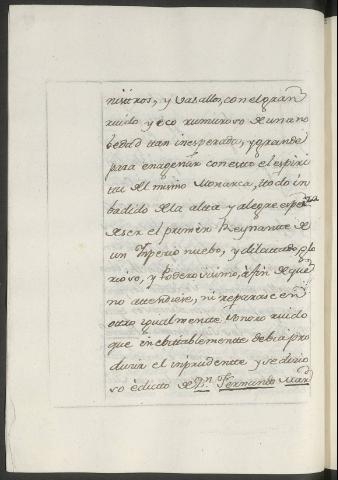 nistros, y vasallos, con el gran
ruido y eco rumuroso de una no
bedad tan inesperada, y grande
para enagenar con esto el espiri
tu del mismo Monarca, ttodo in
badido de la alta y alegre
de ser el primer Reynantte de
un Ynperio nuebo, y dilattado glo
rioso, y Poderosisimo, à fin de que
no attendiese, ni reparase en
ottro igualmentte sonoro ruido
que inebittablementte debia pro
ducir el inprudentte y sedicio
so èdicto de Dn. Fernando